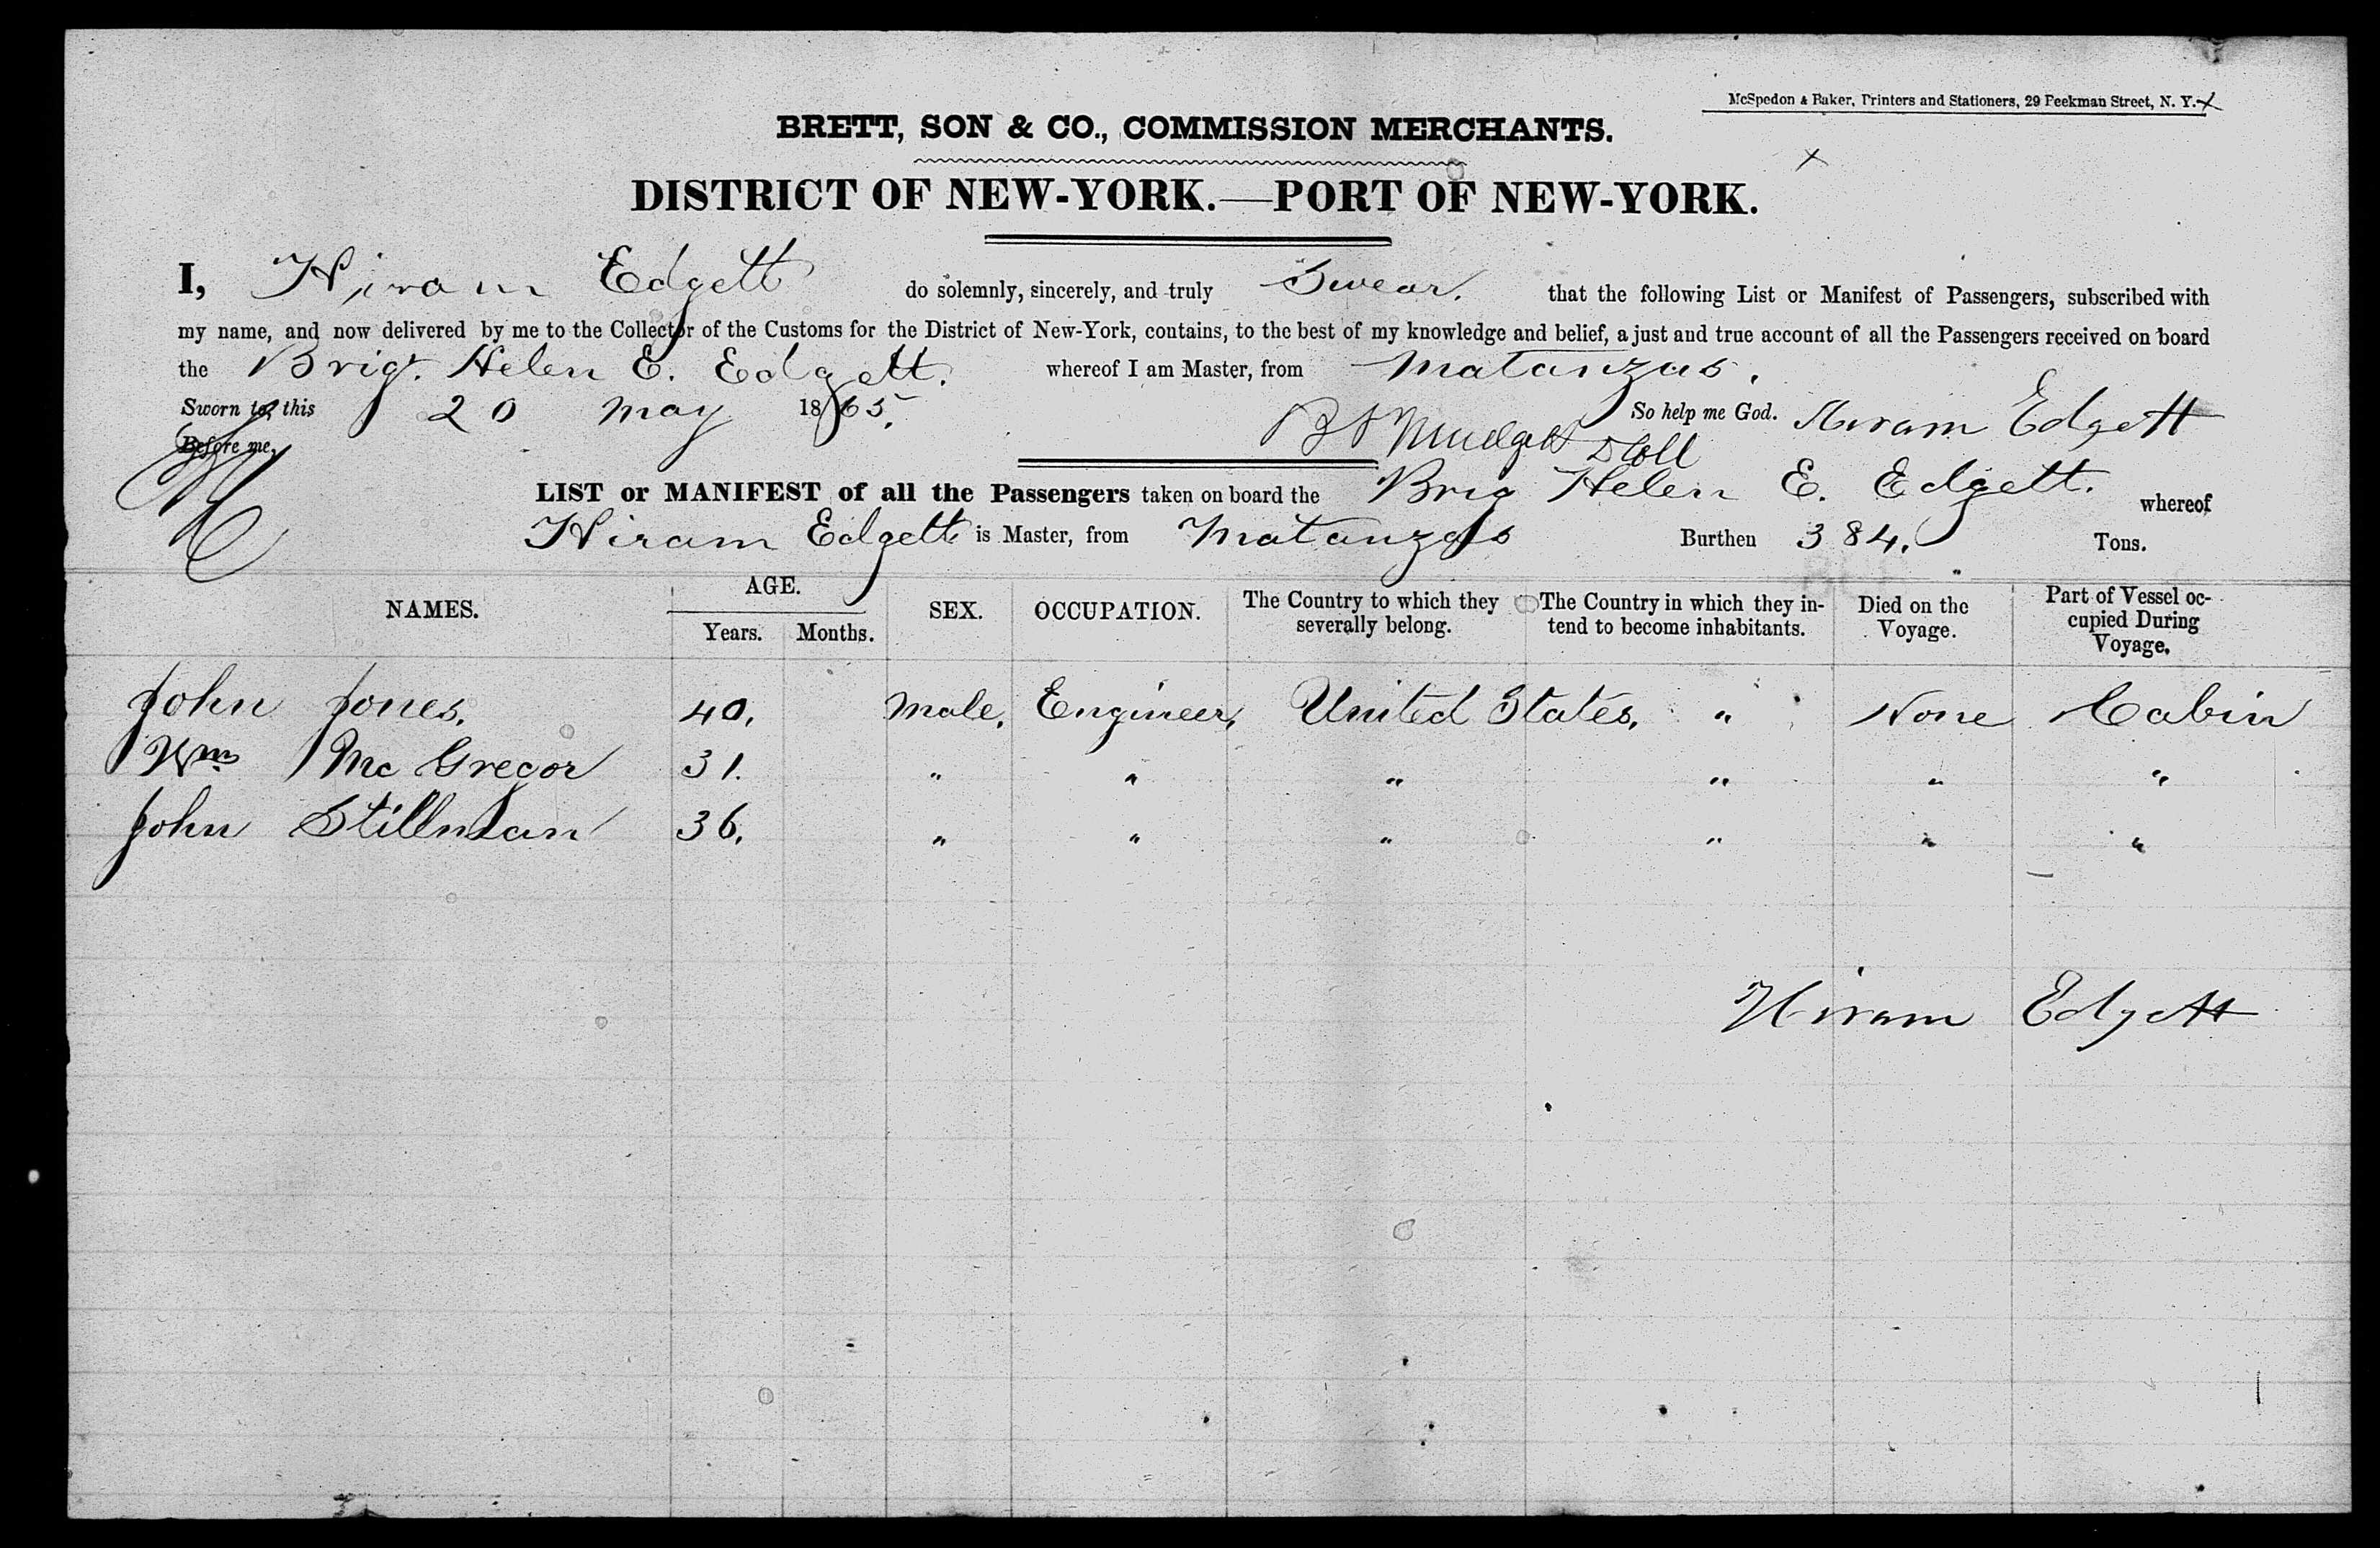 McSpedon & Baker, Printers and Stationers, 29 Beekman Street, N. Y.
BRETT, SON & CO., COMMISSION MERCHANTS.
DISTRICT OF NEW-YORK.—PORT OF NEW-YORK.
I, Hiram Edgett do solemnly, sincerely, and truly Swear. that the following List or Manifest of Passengers, subscribed with
my name, and now delivered by me to the Collector of the Customs for the District of New-York, contains, to the best of my knowledge and belief, a just and true account of all the Passengers received on board
the Brig. Helen E. Edgett. whereof I am Master, from Matanzas.
Sworn to, this 20 May 1865. So help me God. Hiram Edgett
Before me, Mudgett D Coll
LIST or MANIFEST of all the Passengers taken on board the Brig Helen E. Edgett. whereof
Hiram Edgett is Master, from Matanzas Burthen 384. Tons.
NAMES. AGE. Years. Months. SEX. OCCUPATION. The Country to which they severally belong. The Country in which they intend to become inhabitants. Died on the Voyage. Part of Vessel occupied During Voyage.
John Jones. 40. Male. Engineer, United States, " None Cabin
Wm Mc Gregor 31. " " " " " "
John Stillman 36. " " " " " "
Hiram Edgett